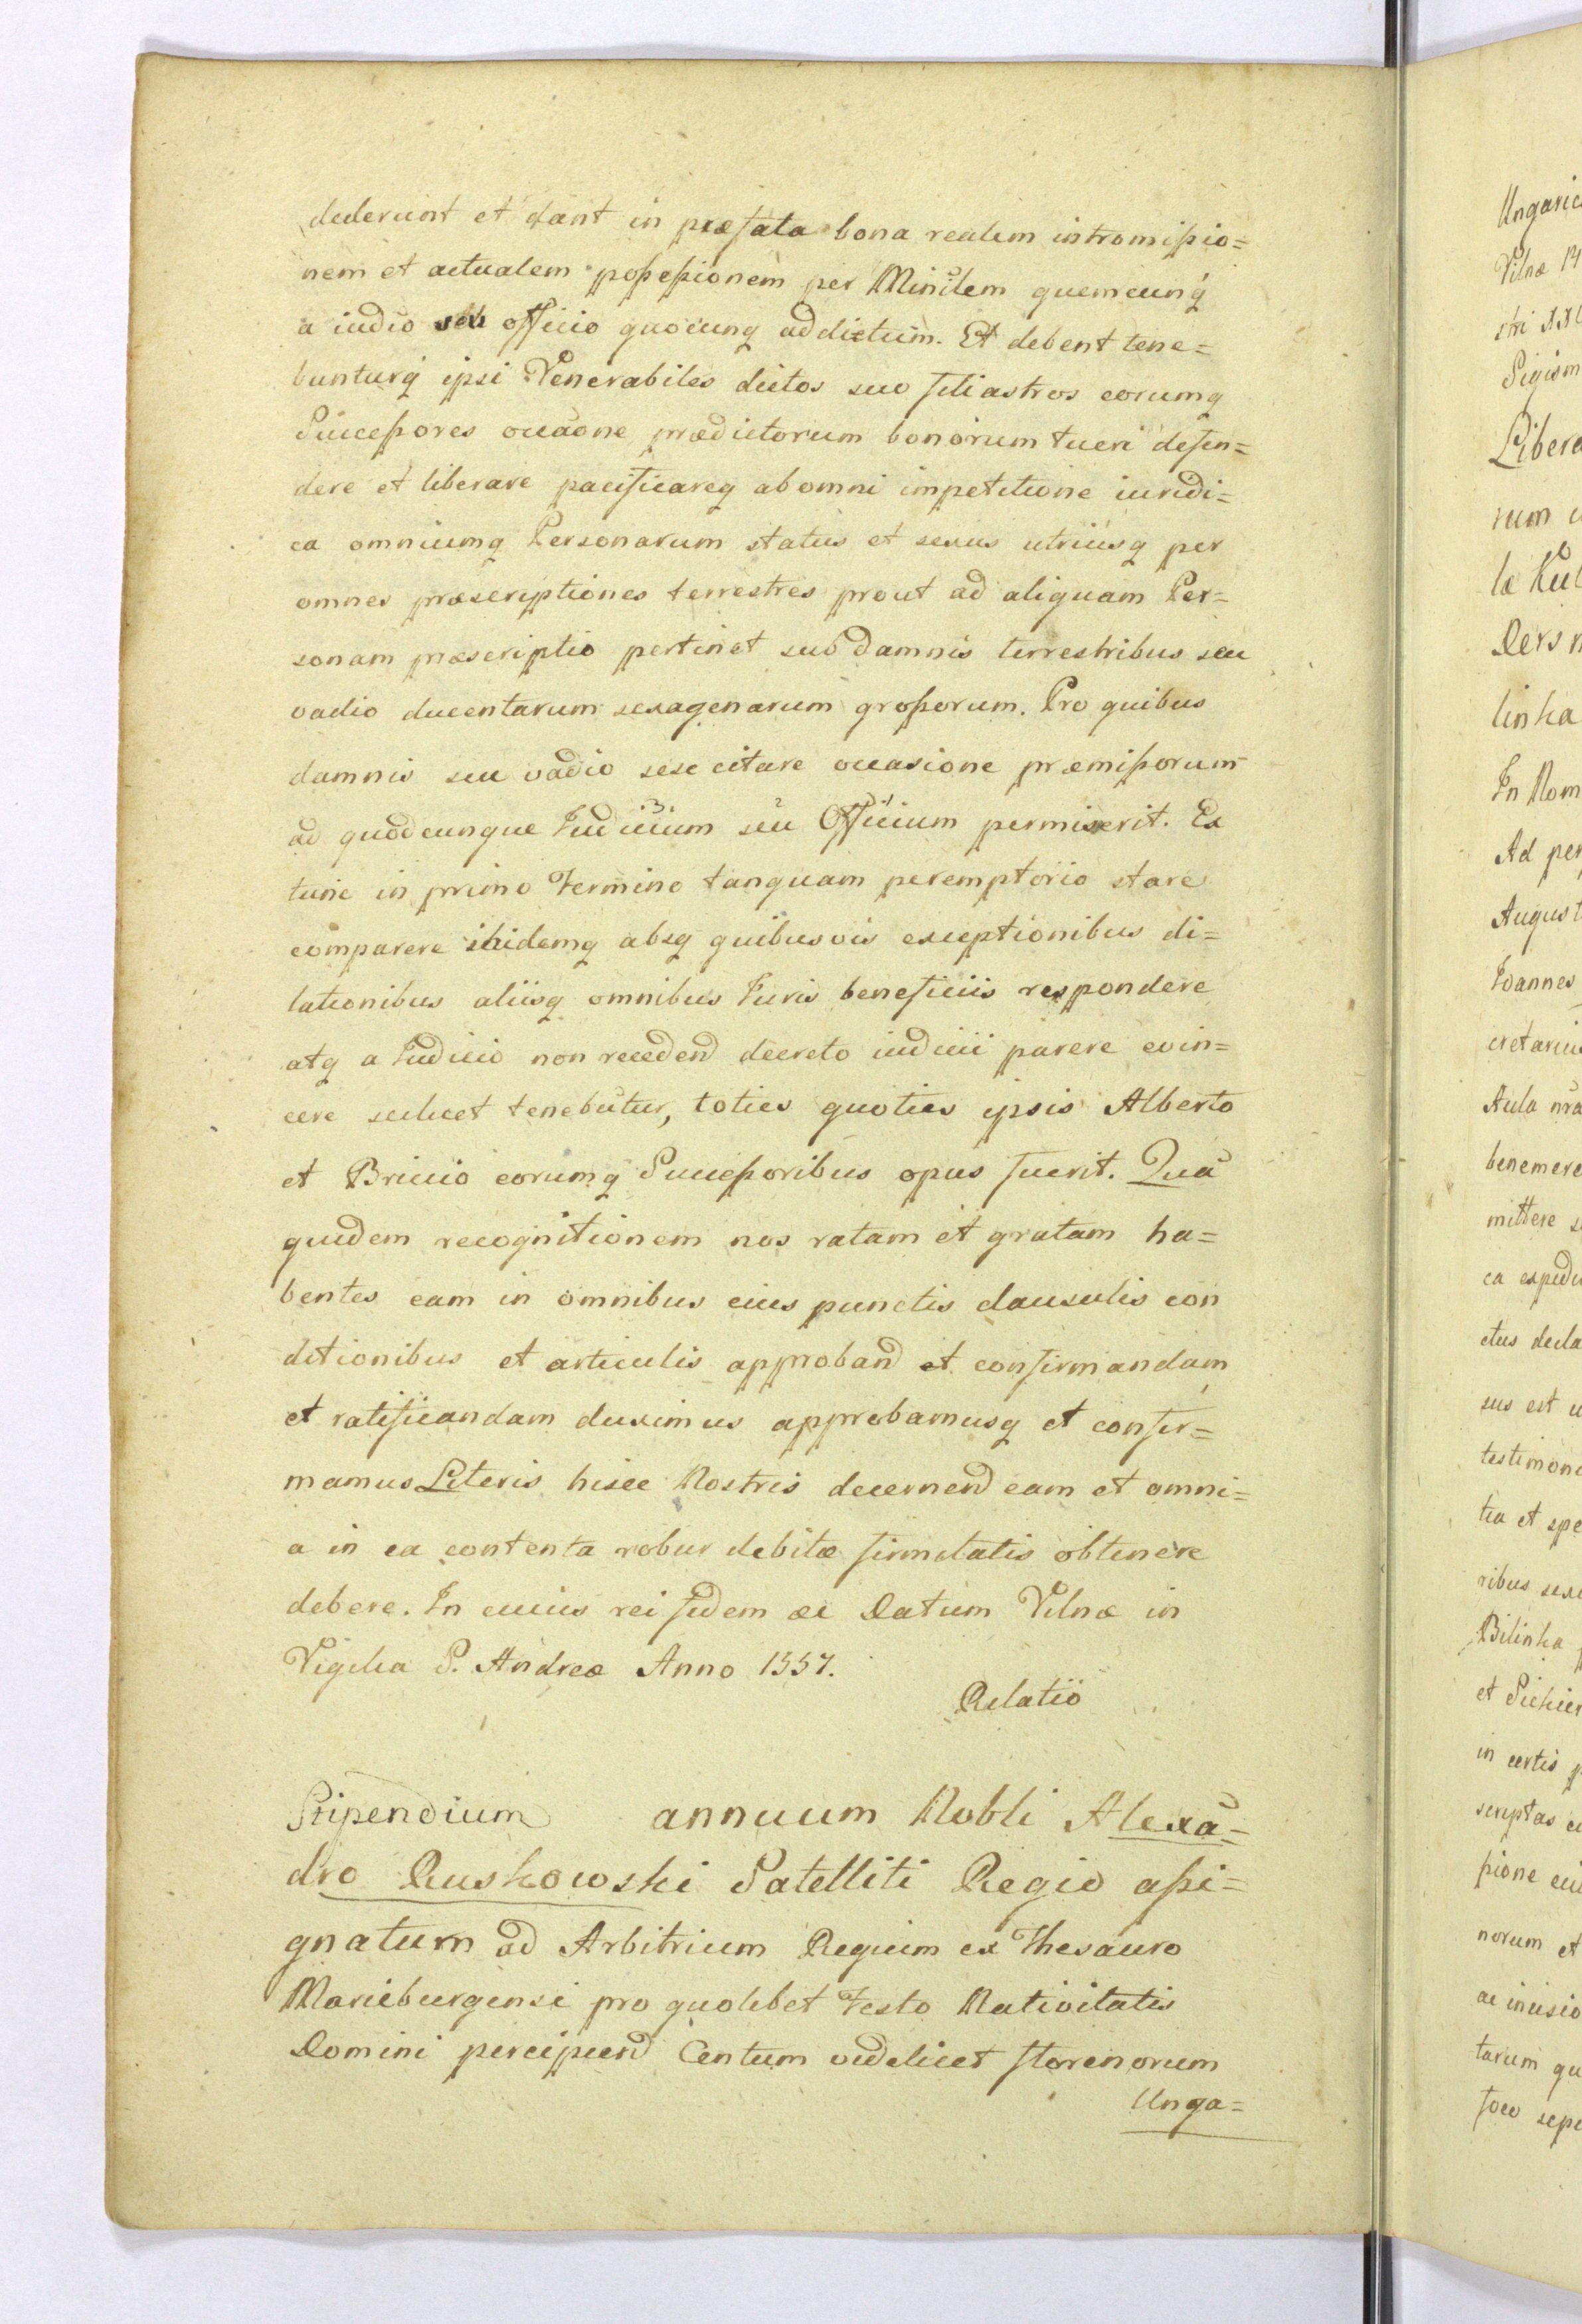 dederunt et dant in præfata bona realem intromißio=
nem et actualem poßeßionem per Minilem quemcunq
a iudio seu officio quocunq addictum. Et debent tene=
bunturq ipsi Venerabiles dictos suo filiastros eorumq
Succeßores occaone prædictorum bonorum tueri defen=
dere et liberare pacificareq ab omni impetitione iuridi=
ca omniumq Personarum status et sexus utriusq per
omnes præscriptiones terrestres prout ad aliquam Per=
sonam præscriptio pertinet sub damnis terrestribus seu
vadio ducentarum sexagenarum großorum. Pro quibus
damnis seu vadio sese citare occasione præmißorum
ad quodcunque Judicium seu Officium permiserit. Ex
tunc in primo Termino tanquam peremptorio stare
comparere ibidemq absq quibusvis exceptionibus di=
lationibus aliisq omnibus Juris beneficiis respondere
atq a Judicio non recedend decreto iudicii parere evin=
cere scilicet tenebutur, toties quoties ipsis Alberto
et Briccio eorumq Succeßoribus opus fuerit. Qua
quidem recognitionem nos ratam et gratam ha=
bentes eam in omnibus eius punctis clausulis con
ditionibus et articulis approband et confirmandam
et ratificandam duximus approbamusq et confir=
mamus Literis hisce Nostris decernend eam et omni=
a in ea contenta robur debitæ firmitatis obtinere
debere. In cuius rei fidem æc Datum Vilnæ in
Vigilia S. Andreæ Anno 1557.
Relatio
Stipendium annuum Nobli Alexa=
dro Ruskowski Satelliti Regio aßi=
gnatum ad Arbitrium Regium ex Thesauro
Marieburgensi pro quolibet Festo Nativitatis
Domini percipiend Centum videlicet florenorum
Unga=
Ungaric
Vilnæ
stri
Sigism
Libera
rum
læ
Ders
linka
In Nom
Ad per
August
Joannes
cretarius
Aula nra
benemere
mittere
ca expedi
ctus decla
sus est u
testimoni
tia et spe
ribus
Bilinka
et
in certis
scriptas
ßione
norum et
ac
tarum qu
foco sepe